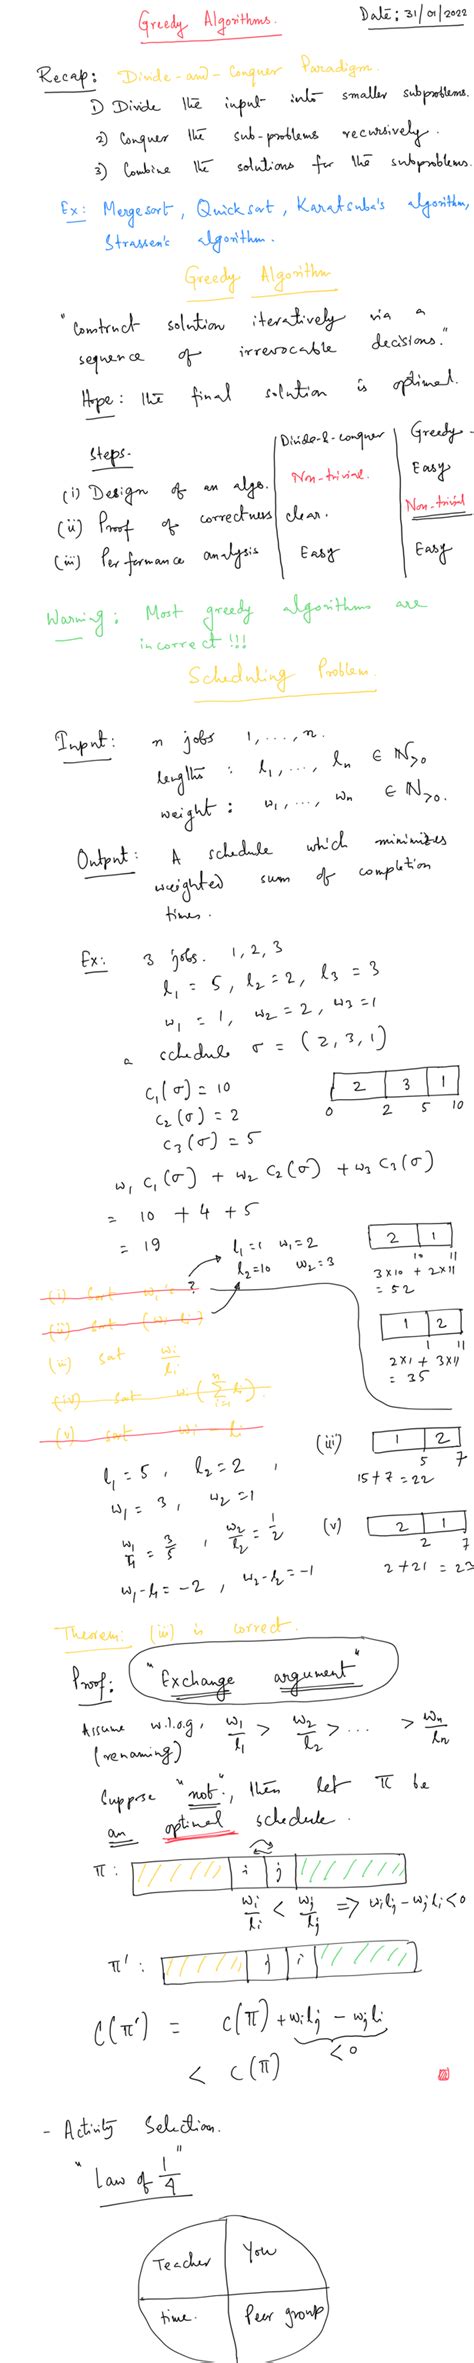 Greedy Algorithms.
Date: 31/01/2022
Recap: Divide-and-Conquer Paradigm.
1) Divide the input into smaller subproblems.
2) Conquer the sub-problems recursively.
3) Combine the solutions for the subproblems.
Ex: Mergesort, Quicksort, Karatsuba's algorithm,
Strassen's algorithm.
Greedy Algorithm
"Construct solution iteratively via a
sequence of irrevocable decisions."
Hope: the final solution is optimal.
Steps. Divide-&-conquer Greedy.
(i) Design of an algo. Non-trivial. Easy
(ii) Proof of correctness clear. Non-trivial
(iii) Performance analysis Easy Easy
Warning: Most greedy algorithms are
incorrect !!!
Scheduling Problem.
Input: n jobs 1, ..., n.
lengths: l1, ..., ln ∈ ℕ>0
weight: w1, ..., wn ∈ ℕ>0.
Output: A schedule which minimizes
weighted sum of completion
times.
Ex: 3 jobs. 1, 2, 3
l1 = 5, l2 = 2, l3 = 3
w1 = 1, w2 = 2, w3 = 1
a schedule σ = (2, 3, 1)
C1(σ) = 10
2 3 1
C2(σ) = 2
0 2 5 10
C3(σ) = 5
w1 C1(σ) + w2 C2(σ) + w3 C3(σ)
= 10 + 4 + 5
= 19
l1=1 w1=2
l2=10 w2=3
2 1
10 11
3x10 + 2x11
= 52
(i) sort wi's ?
(ii) sort (wi li)
1 2
1 11
(iii) sort wi/li
2x1 + 3x11
= 35
(iv) sort wi(∑i=1n li).
(v) sort wi - li
l1 = 5, l2 = 2,
(iii) 1 2
5 7
15+7=22
w1 = 3, w2 = 1
w1/l1 = 3/5, w2/l2 = 1/2
(v) 2 1
2 7
w1-l1 = -2, w2-l2 = -1
2+21 = 23
Theorem: (iii) is correct.
Proof: "Exchange argument"
Assume w.l.o.g. w1/l1 > w2/l2 > ... > wn/ln
(renaming)
Suppose "not", then let π be
an optimal schedule.
π: i j
wi/li < wj/lj => wilj - wjli < 0
π': j i
C(π') = C(π) + wilj - wjli
< 0
< C(π)
- Activity Selection.
"Law of 1/4"
Teacher You
time. Peer group